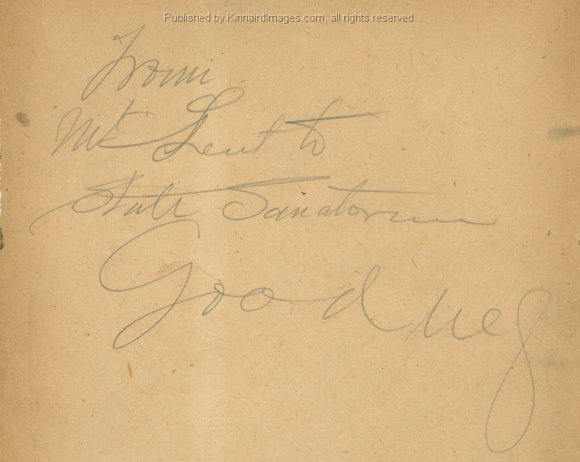 Published by KinnairdImages.com, all rights reserved.
From
Mt Sent to
State Sanatorium
Good neg